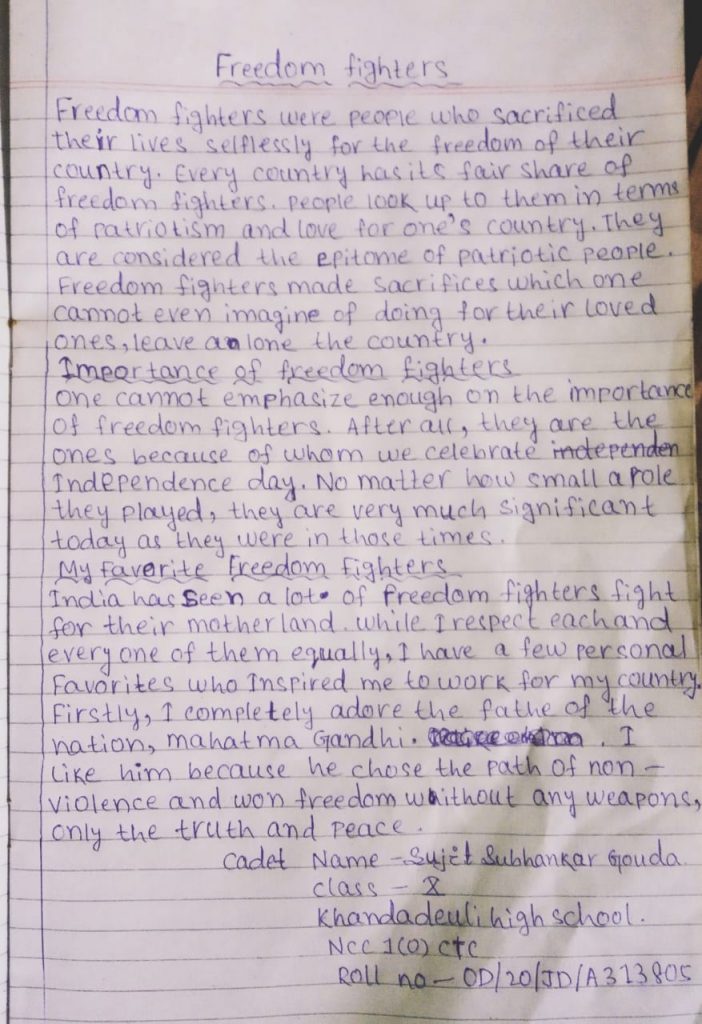 Freedom fighters
Freedom fighters were people who sacrificed
their lives selflessly for the freedom of their
country. Every country has its fair share of
freedom fighters. People look up to them in terms
of patriotism and love for one's country. They
are considered the epitome of patriotic people.
Freedom fighters made sacrifices which one
cannot even imagine of doing for their loved
ones, leave alone the country.
Importance of freedom fighters
One cannot emphasize enough on the importance
of freedom fighters. After all, they are the
ones because of whom we celebrate independen
Independence day. No matter how small a role
they played, they are very much significant
today as they were in those times.
My favorite freedom fighters
India has seen a lot of freedom fighters fight
for their motherland. while I respect each and
every one of them equally, I have a few personal
favorites who Inspired me to work for my country.
Firstly, I completely adore the fathe of the
nation, mahatma Gandhi. . I
like him because he chose the path of non-
violence and won freedom without any weapons,
only the truth and peace.
Cadet Name - Sujit Subhankar Gouda
class - X
Khandadeuli high school.
NCC 1(O) CTC
Roll no - OD/20/JD/A313805